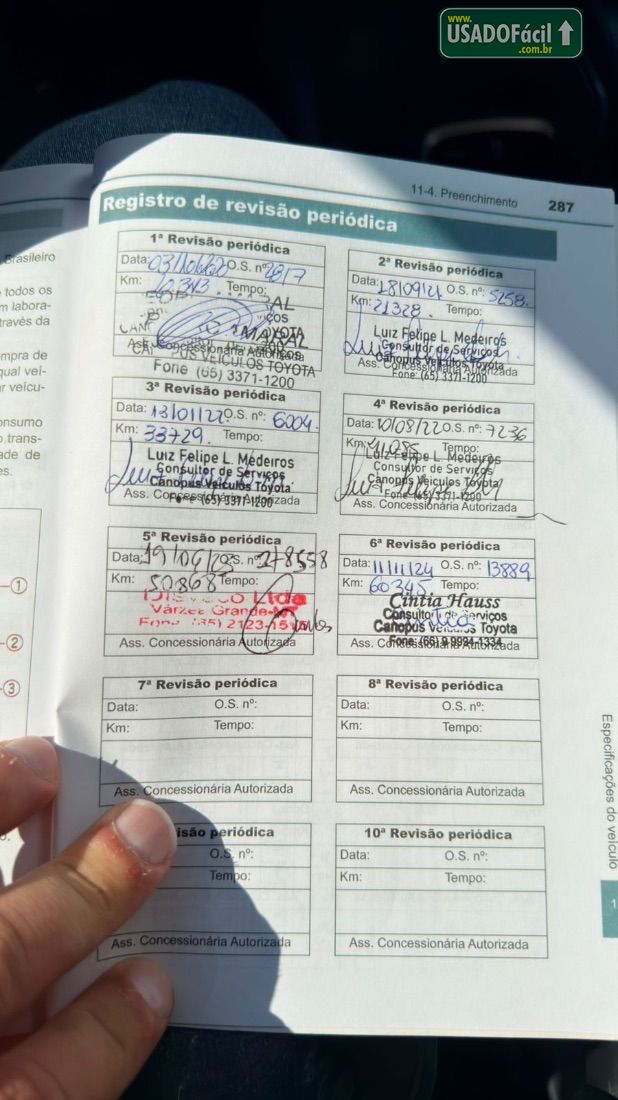 www.
USADOFácil
.com.br
11-4. Preenchimento 287
Registro de revisão periódica
Brasileiro
todos os
m labora-
través da
mpra de
qual veí-
r veícu-
onsumo
trans-
ade de
es.
1
2
3
1ª Revisão periódica
Data: O.S. nº: 2817
Km: 10343 Tempo:
TOYOTA
Ass. Concessionária Autorizada
CANOPUS VEICULOS TOYOTA
Fone (65) 3371-1200
2ª Revisão periódica
Data: 18/09/21 O.S. nº: 5258
Km: 21328 Tempo:
Luiz Felipe L. Medeiros
Consultor de Serviços
Canopus Veículos Toyota
Ass. Concessionária Autorizada
Fone: (65) 3371-1200
3ª Revisão periódica
Data: 13/01/22 O.S. nº: 6004
Km: 33729 Tempo:
Luiz Felipe L. Medeiros
Consultor de Serviços
Canopus Veículos Toyota
Fone (65) 3371-1200
Ass. Concessionária Autorizada
4ª Revisão periódica
Data: 10/08/22 O.S. nº: 7236
Km: 41085 Tempo:
Luiz Felipe L. Medeiros
Consultor de Serviços
Canopus Veículos Toyota
Fone (65) 3371-1200
Ass. Concessionária Autorizada
5ª Revisão periódica
Data: O.S. nº: 278558
Km: 50868 Tempo:
Ltda
Várzea Grande-M
Fone 2123-1515
Ass. Concessionária Autorizada
6ª Revisão periódica
Data: 11/11/24 O.S. nº: 13889
Km: 60345 Tempo:
Cíntia Hauss
Consultor de Serviços
Canopus Veículos Toyota
Ass. Concessionária Autorizada
Fone: (65) 9 9994-1334
7ª Revisão periódica
Data: O.S. nº:
Km: Tempo:
Ass. Concessionária Autorizada
8ª Revisão periódica
Data: O.S. nº:
Km: Tempo:
Ass. Concessionária Autorizada
isão periódica
O.S. nº:
Tempo:
Ass. Concessionária Autorizada
10ª Revisão periódica
Data: O.S. nº:
Km: Tempo:
Ass. Concessionária Autorizada
Especificações do veículo
1